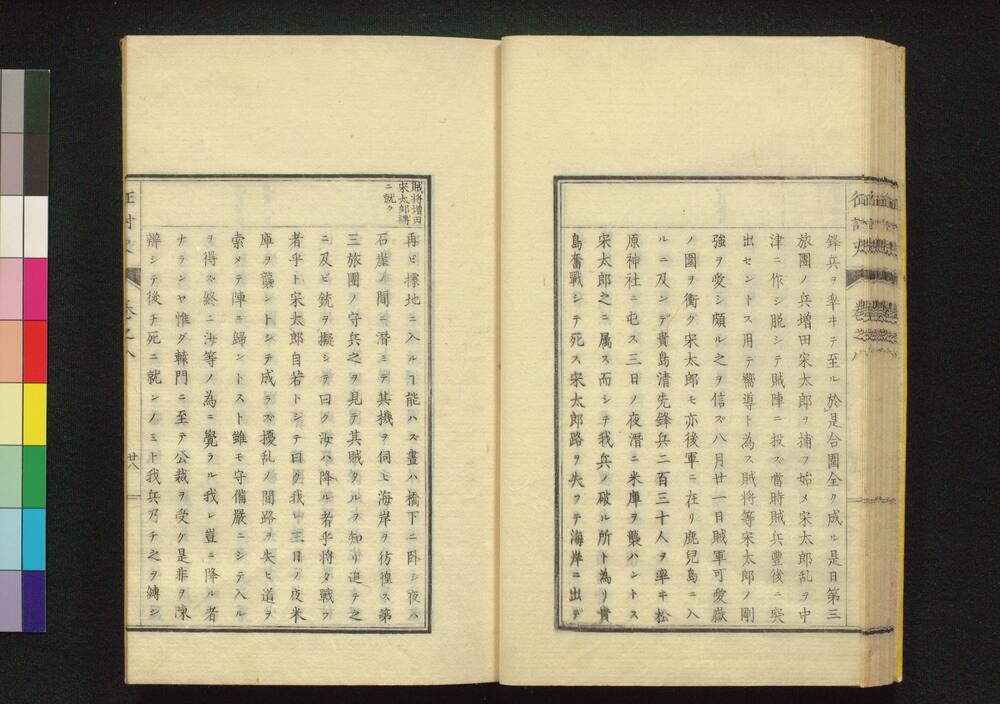 鋒兵ヲ率ヰテ至ル於是合圍全ク成ル是日第三
旅團ノ兵増田宋太郎ヲ捕フ始メ宋太郎乱ヲ中
津ニ作シ脱シテ賊陣ニ投ス當時賊兵豊後ニ突
出セントス用テ嚮導ト為ス賊将等宋太郎ノ剛
強ヲ愛シ頗ル之ヲ信ス八月廿一日賊軍可愛嶽
ノ圍ヲ衝ク宋太郎モ亦後軍ニ在リ鹿児島ニ入
ルニ及ンデ貴島清先鋒兵二百三十人ヲ率ヰ松
原神社ニ屯ス三日ノ夜潜ニ米庫ヲ襲ハントス
宋太郎之ニ属ス而シテ我兵ノ破ル所ト為リ貴
島奮戰シテ死ス宋太郎路ヲ失ヲテ海岸ニ出デ
征討史 巻之八
賊将増田
宋太郎縛
ニ就ク
再ビ據地ニ入ルヿ能ハズ晝ハ橋下ニ卧シ夜ハ
石崖ノ間ニ潜ミテ其機ヲ伺ヒ海岸ヲ彷徨ス第
三旅團ノ守兵之ヲ見テ其賊タルヲ知リ追テ之
ニ及ビ銃ヲ擬シテ曰ク汝ハ降ル者乎将タ戰フ
者乎ト宋太郎自若トシテ曰ク我レ三日ノ夜米
庫ヲ襲シトシテ成ラズ擾乱ノ間路ヲ失ヒ道ヲ
索メテ陣ニ歸ントスト雖モ守備嚴ニシテ入ル
ヲ得ズ終ニ汝等ノ為ニ覺ラル我レ豈ニ降ル者
ナランヤ惟ダ轅門ニ至テ公裁ヲ受ケ是非ヲ陳
辨シテ後チ死ニ就ンノミト我兵乃チ之ヲ縛シ
征討史 巻之八 廿八